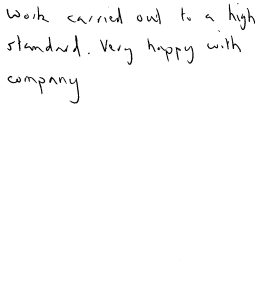 Work carried out to a high
standard. Very happy with
company